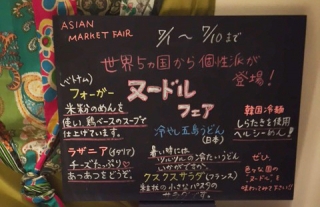 ASIAN
MARKET FAIR
7/1 〜 7/10 まで
世界5カ国から個性派が
登場!
(ベトナム)
フォーガー
米粉のめんを
使い、鶏ベースのスープで
仕上ています。
ヌードル
フェア
韓国冷麺
しらたきを使用
ヘルシーめん!!
冷やし五島うどん
(日本)
ラザニア(イタリア)
チーズたっぷり♡
あつあつをどうぞ。
暑い時には
ツルツルの冷たいうどん
いかがですか。
クスクスサラダ(フランス)
粒状の小さなパスタの
サラダです。
ぜひ、
色々な国の
ヌードルを
味わってみて下さい!!